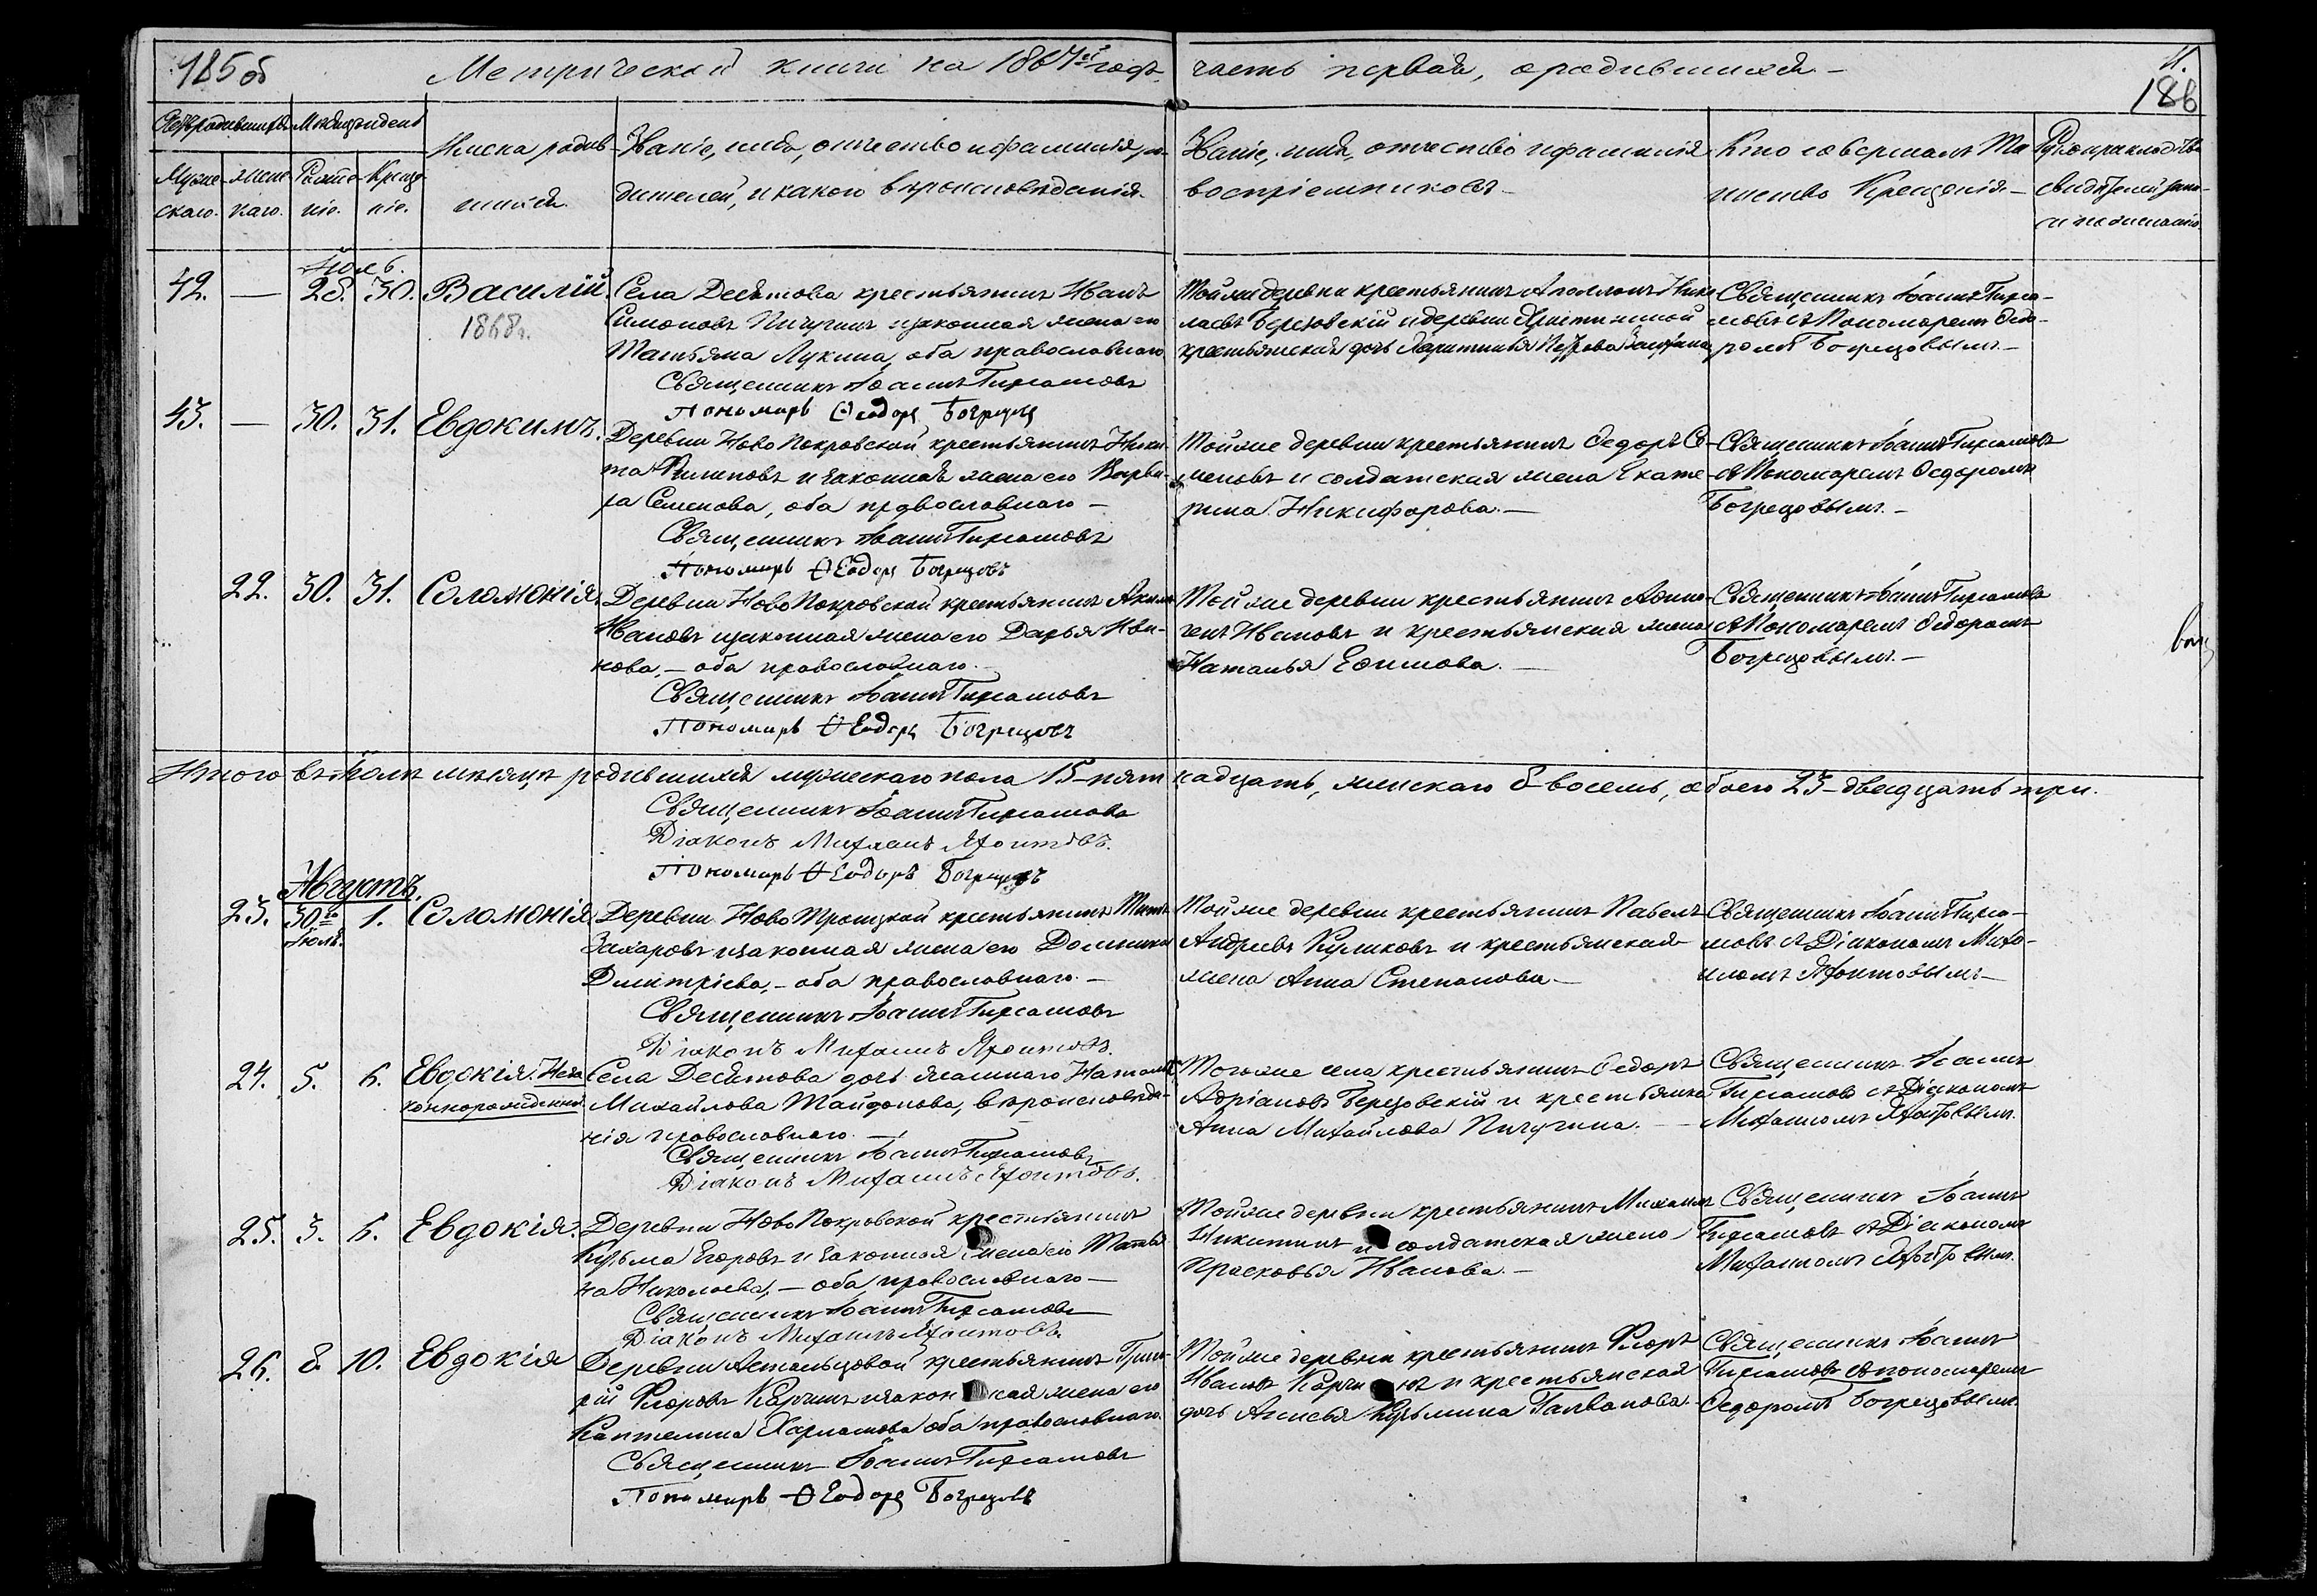 185 об
Метрической книги на 1867й годъ,
часть первая, о родившихся. –
11.
186
Мѣсяцъ и день
Муже-
скаго.
жен-
скаго.
Рожде-
ніе.
Креще-
ніе.
Имена родив-
шихся.
Званіе, имя, отчество и фамилія ро-
дителей, и какого вѣроисповѣданія.
Званіе, имя, отчество и фамилія
воспріемниковъ. –
Кто совершалъ Та-
инство Крещенія. –
свидѣтелей запи-
си по желанію.
Іюль.
42. — 28. 30. Василій.
1868г.
Села Десятова крестьянинъ Иванъ
Симоновъ Пичугинъ и законная жена его
Татьяна Лукина, оба православнаго
Священникъ Іоаннъ
Пономарь Ѳеодоръ Богрецовъ
Той же деревни крестьянинъ Аполлонъ Нико-
лаевъ Березовскій и деревни
крестьянская дочь Харитинья Петрова
Священникъ Іоаннъ
съ Пономаремъ Ѳедо-
ромъ Богрецовымъ. –
43. — 30. 31. Евдокимъ.
Деревни Ново Покровской крестьянинъ Ники-
та Филиповъ и законная жена его Варва-
ра Семенова, оба православнаго –
Священникъ Іоаннъ
Пономарь Ѳеодоръ Богрецовъ
Той же деревни крестьянинъ Ѳедоръ Се-
меновъ и солдатская жена Екате-
рина Никифорова. –
Священникъ Іоаннъ
съ Пономаремъ Ѳедоромъ
Богрецовымъ. –
22. 30. 31. Соломонія.
Деревни Ново Покровской крестьянинъ Акимъ
Ивановъ и законная жена его Дарья Ива-
нова, – оба православнаго. –
Священникъ Іоаннъ
Пономарь Ѳеодоръ Богрецовъ
Той же деревни крестьянинъ Аѳино-
генъ Ивановъ и крестьянская жена
Наталья Ефимова. –
Священникъ Іоаннъ
съ Пономаремъ Ѳедоромъ
Богрецовымъ. –
Итого въ Іюлѣ мѣсяцѣ родившихся мужескаго пола 15–пятнадцать, женскаго 8–восемь, обоего 23–двадцать три.
Священникъ Іоаннъ
Діаконъ Михаилъ Яхонтовъ.
Пономарь Ѳеодоръ Богрецовъ
Августъ.
23. 30го 1. Соломонія
Іюля.
Деревни Ново Троицкой крестьянинъ Титъ
Захаровъ и законная жена его Домника
Димитріева, – оба православнаго. –
Священникъ Іоаннъ
Діаконъ Михаилъ Яхонтовъ.
Той же деревни крестьянинъ Павелъ
Андреевъ Куликовъ и крестьянская
жена Анна Степанова. –
Священникъ Іоаннъ
съ Діакономъ Миха-
иломъ Яхонтовымъ –
24. 5. 6. Евдокія. Неза-
коннорожденная.
Села Десятова дочь ясашнаго Наталья
Михайлова Тайдонова, вѣроисповѣда-
нія православнаго. –
Священникъ Іоаннъ
Діаконъ Михаилъ Яхонтовъ.
Того же села крестьянинъ Ѳедоръ
Адріановъ Березовскій и крестьянка
Анна Михайлова Пичугина. –
Священникъ Іоаннъ
съ Діакономъ
Михаиломъ Яхонтовымъ.
25. 3. 6. Евдокія.
Деревни Ново Покровской крестьянинъ
Кузьма Егоровъ и законная жена его Татья-
на Николаева, – оба православнаго –
Священникъ Іоаннъ
Діаконъ Михаилъ Яхонтовъ.
Той же деревни крестьянинъ Михаилъ
Никитинъ и солдатская жена
Прасковья Иванова. –
Священникъ Іоаннъ
съ Діакономъ
Михаиломъ Яхонтовымъ.
26. 8. 10. Евдокія
Деревни Астальцовой крестьянинъ Григо-
рій Флоровъ Карчинъ и законная жена его
Каптелина Харлампова оба православнаго.
Священникъ Іоаннъ
Пономарь Ѳеодоръ Богрецовъ
Той же деревни крестьянинъ Флоръ
Ивановъ и крестьянская
дочь Агнесья Кузьмина Галванова. –
Священникъ Іоаннъ
съ пономаремъ
Ѳедоромъ Богрецовымъ.